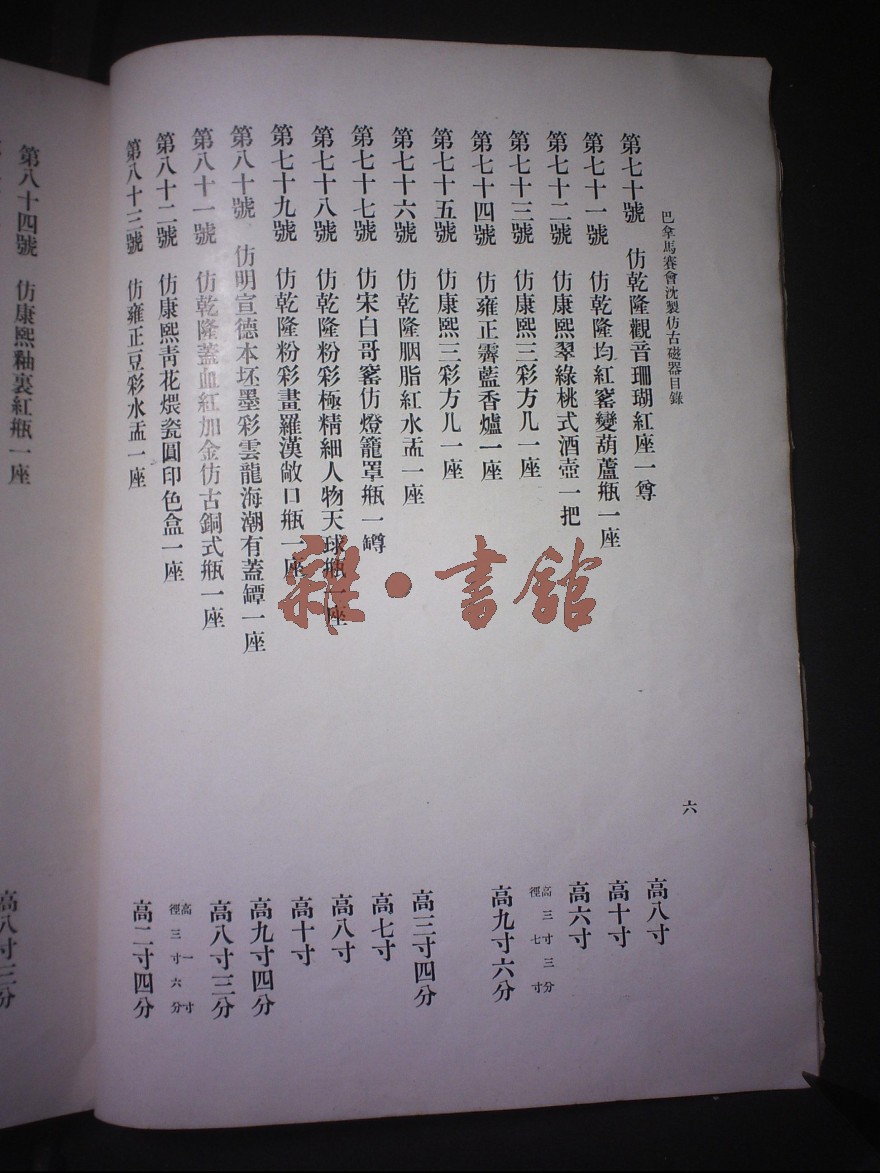 巴拿馬賽會沈製仿古磁器目錄
六
第七十號 仿乾隆觀音珊瑚紅座一尊 高八寸
第七十一號 仿乾隆均紅窰變葫蘆瓶一座 高十寸
第七十二號 仿康熙翠綠桃式酒壺一把 高六寸
第七十三號 仿康熙三彩方儿一座 高三寸三分 徑七寸
第七十四號 仿雍正霽藍香爐一座 高九寸六分
第七十五號 仿康熙三彩方儿一座
第七十六號 仿乾隆胭脂紅水盂一座 高三寸四分
第七十七號 仿宋白哥窰仿燈籠罩瓶一罇 高七寸
第七十八號 仿乾隆粉彩極精細人物天球瓶一座 高八寸
第七十九號 仿乾隆粉彩畫羅漢敞口瓶一座 高十寸
第八十號 仿明宣德本坯墨彩雲龍海潮有蓋罈一座 高九寸四分
第八十一號 仿乾隆蓋血紅加金仿古銅式瓶一座 高八寸三分
第八十二號 仿康熙靑花煨瓷圓印色盒一座 高一寸 徑三寸六分
第八十三號 仿雍正豆彩水盂一座 高二寸四分
第八十四號 仿康熙釉裏紅瓶一座 高八寸三分
雜·書館